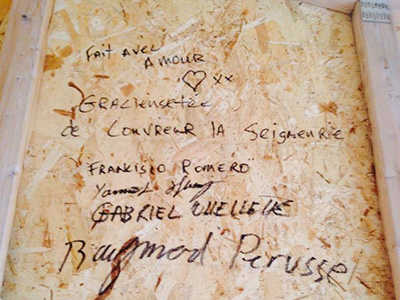 Fait avec
Amour
♡ xx
Gracieusetée
de Couvreur la Seigneurie
Francisco Romero
Gabriel Ouellette
Raymond Perusse